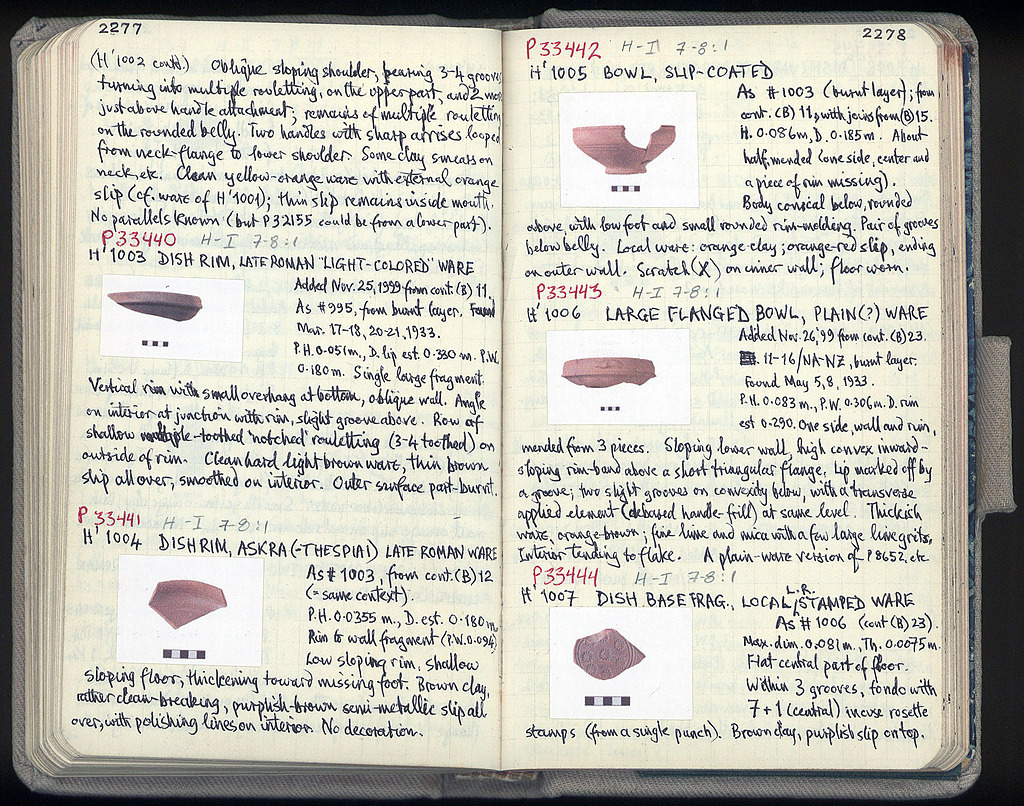 2277
(H'1002 contd.) Oblique sloping shoulder, bearing 3-4 grooves
turning into multiple rouletting, on the upper part, and 2 more
just above handle attachment; remains of multiple rouletting
on the rounded belly. Two handles with sharp arrises looped
from neck-flange to lower shoulder. Some clay smears on
neck, etc. Clean yellow-orange ware with external orange
slip (cf. ware of H'1001); thin slip remains inside mouth.
No parallels known (but P32155 could be from a lower part).
P33440 H-I 7-8:1
H'1003 DISH RIM, LATE ROMAN "LIGHT-COLORED" WARE
Added Nov. 25, 1999 from cont. (B) 11.
As #995, from burnt layer. Found
Mar. 17-18, 20-21, 1933.
P.H. 0.051m, D. lip est. 0.330 m. P.W.
0.180 m. Single large fragment.
Vertical rim with small overhang at bottom, oblique wall. Angle
on interior at junction with rim, slight groove above. Row of
shallow multiple-toothed 'notched' rouletting (3-4 toothed) on
outside of rim. Clean hard light brown ware, thin brown
slip all over, smoothed on interior. Outer surface part-burnt.
P 33441 H-I 7-8:1
H'1004 DISH RIM, ASKRA (-THESPIAI) LATE ROMAN WARE
As #1003, from cont. (B) 12
(= same context).
P.H. 0.0355 m., D. est. 0.180 m.
Rim to wall fragment (P.W. 0.094)
Low sloping rim, shallow
sloping floor, thickening toward missing foot. Brown clay,
rather clean-breaking, purplish-brown semi-metallic slip all
over, with polishing lines on interior. No decoration.
2278
P33442 H-I 7-8:1
H'1005 BOWL, SLIP-COATED
As #1003 (burnt layer); from
cont. (B) 11, with joins from (B) 15.
H. 0.086m, D. 0.185m. About
half, mended (one side, center and
a piece of rim missing).
Body conical below, rounded
above, with low foot and small rounded rim-molding. Pair of grooves
below belly. Local ware: orange clay; orange-red slip, ending
on outer wall. Scratch (X) on inner wall; floor worn.
P33443 H-I 7-8:1
H'1006 LARGE FLANGED BOWL, PLAIN(?) WARE
Added Nov. 26, '99 from cont. (B) 23.
11-16/NA-NZ, burnt layer.
Found May 5, 8, 1933.
P.H. 0.083 m., P.W. 0.306m. D. rim
est 0.290. One side, wall and rim,
mended from 3 pieces. Sloping lower wall, high convex inward-
sloping rim-band above a short triangular flange, lip marked off by
a groove; two slight grooves on convexity below, with a transverse
applied element (debased handle-frill) at same level. Thickish
ware, orange-brown; fine lime and mica with a few large lime grits,
Interior tending to flake. A plain-ware version of P8652, etc
P33444 H-I 7-8:1
H'1007 DISH BASE FRAG., LOCAL L.R. STAMPED WARE
As #1006 (cont (B) 23).
Max. dim. 0.081 m., Th. 0.0075 m.
Flat central part of floor.
Within 3 grooves, tondo with
7+1 (central) incuse rosette
stamps (from a single punch). Brown clay, purplish slip on top.